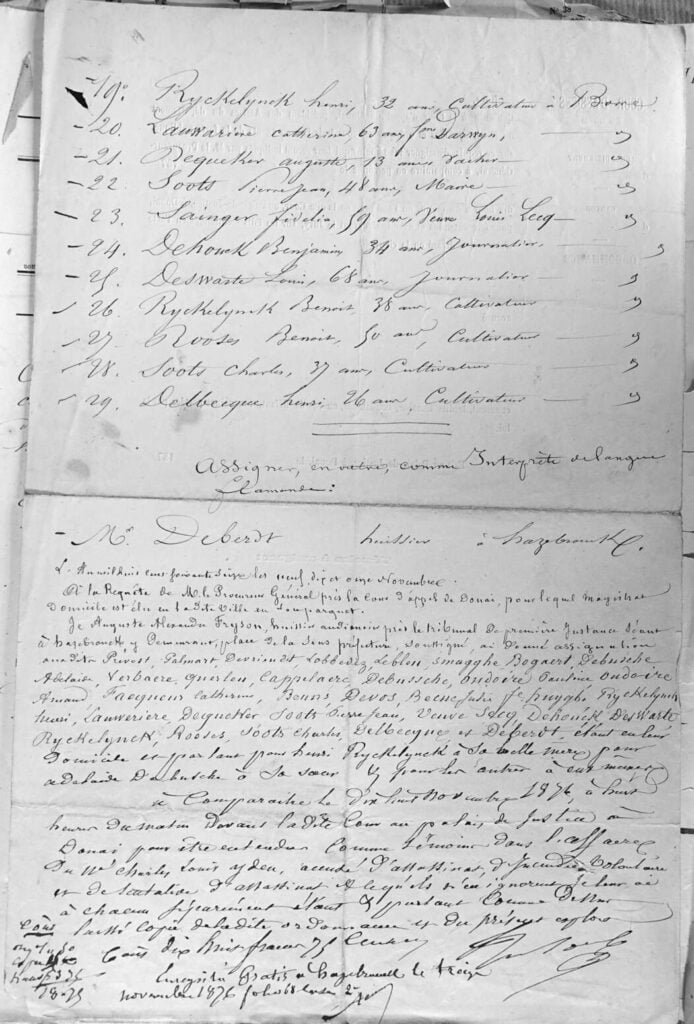 19. Ryckelynck henri, 32 ans, Cultivateur à
20. Lauwarière catherine 63 ans, fme Darwyn, — "
21. Dequeker auguste, 13 ans Vacher — "
22. Soots Pierre Jean, 48 ans, Maire — "
23. fidelia, 59 ans, Veuve Louis Lecq — "
24. Dehouck Benjamin 34 ans, Journalier, — "
25. Deswarte Louis, 68 ans, Journalier — "
26. Ryckelynck Benoit, 38 ans, Cultivateur — "
27. Rooses Benoit, 50 ans, Cultivateur — "
28. Soots Charles, 37 ans, Cultivateur — "
29. Delbecque henri, 26 ans, Cultivateur — "
Assigner, en outre, comme Interprète de langue
flamande :
- Mr. Deberdt huissier à hazebrouck.
L'An mil huit cent soixante seize les neuf, dix et onze Novembre.
A la Requête de M. le Procureur Général près la Cour d'appel de Douai, pour lequel magistrat
Domicile est élu en ladite Ville en son parquet.
Je Auguste Alexandre Fryson, huissier audiencier près le tribunal de première Instance Séant
à hazebrouck y Demeurant, place de la Sous préfecture, soussigné, ai Donné assignation
audits Prevost, Palmart, Devriendt, Lobbedez, Leblon, Smagghe Bogaert, Debusche
Adelaïde, Verbaere, Querleu, Cappelaere, Debussche, Oudoire Pauline Oudoire
Amand, Facqueur Catherine, Devos, huyghe, Ryckelynck
henri, Lauverière, Dequeker Soots Pierre Jean, Veuve Lecq, Dehouck DesWarte
Ryckelynck, Rooses, Soots Charles, Delbecque et Deberdt, étant en leur
Domicile et parlant pour henri Ryckelynck à Sa belle mère pour
adelaide Debusche à Sa soeur & pour les autres à eux mêmes
à Comparaitre le Dix huit Novembre 1876, à huit
heures Du matin Devant ladite Cour au palais de Justice à
Douai pour être entendus Comme témoins dans l'affaire
Du né Charles Louis accusé D'assassinat, d'Incendie Volontaire
et de tentative d'assassinat. A ce qu'ils n'en ignorent je leur ai
à chacun séparément étant & parlant Comme Dessus
laissé Copie de ladite ordonnance et du présent exploit
Coût dix huit francs 75 Centimes
Coût
18-75
Enregistré Gratis à hazebrouck le treize
novembre 1876 folio